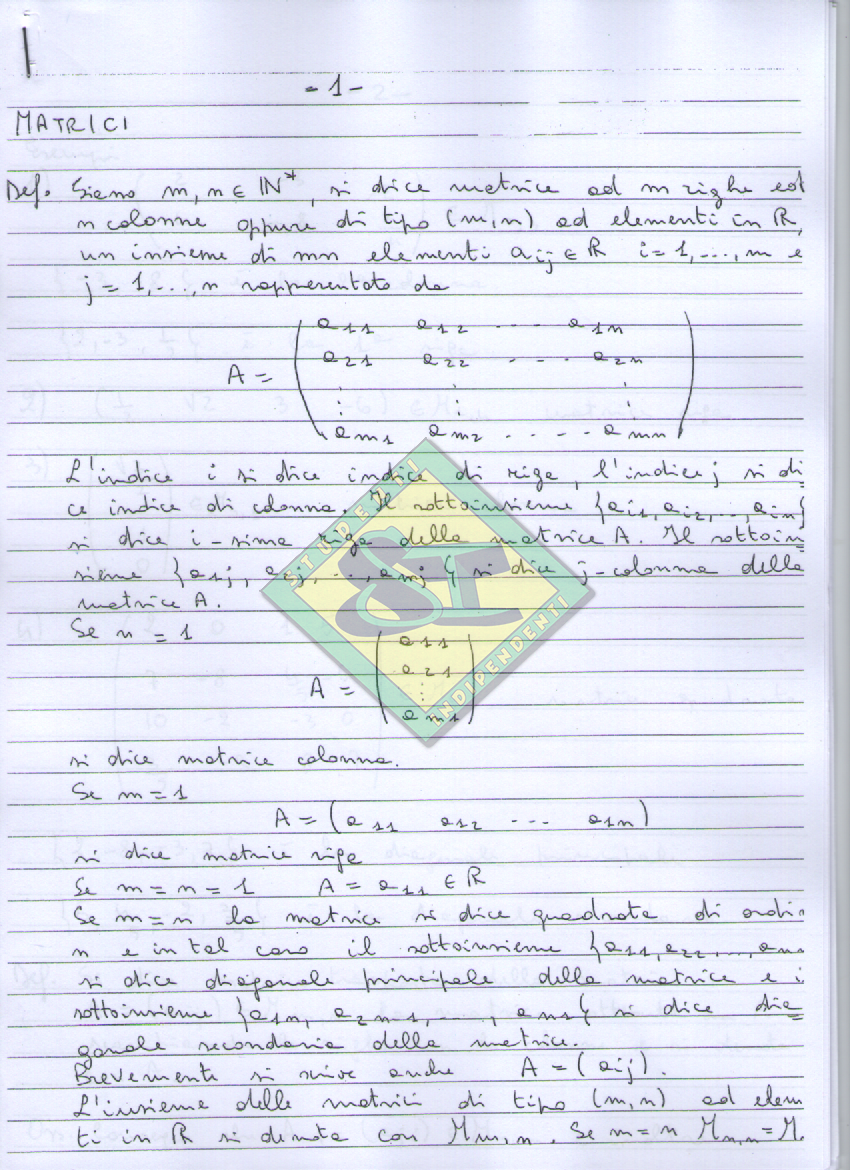 - 1 -
MATRICI
Def. Siano m, n ∈ ℕ*, si dice matrice ad m righe ed
n colonne oppure di tipo (m,n) ad elementi in ℝ,
un insieme di mn elementi aij ∈ ℝ i = 1, ..., m e
j = 1, ..., n rappresentato da
a11 a12 --- a1n
a21 a22 --- a2n
A = ⋮ ⋮ ⋮
am1 am2 ----- amn
L'indice i si dice indice di riga, l'indice j si di
ce indice di colonna. Il sottoinsieme {ai1, ai2, .., ain}
si dice i-sima riga della matrice A. Il sottoin
sieme {a1j, a2j, ..., amj} si dice j-colonna della
matrice A.
Se n = 1
a11
a21
A = ⋮
am1
STUDENTI
INDIPENDENTI
si dice matrice colonna.
Se m = 1
A = (a11 a12 --- a1n)
si dice matrice riga
Se m = n = 1 A = a11 ∈ ℝ
Se m = n la matrice si dice quadrata di ordi
n e in tal caso il sottoinsieme {a11, a22, ...,
si dice diagonale principale della matrice e i
sottoinsieme {a1n, a2n-1, ..., an1} si dice dia
gonale secondaria della matrice.
Brevemente si scrive anche A = (aij).
L'insieme delle matrici di tipo (m,n) ad elem
ti in ℝ si denota con Mm,n. Se m = n Mn,n = M